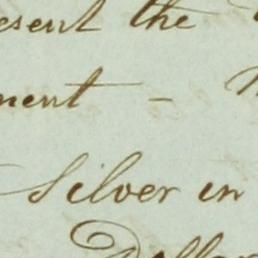 esent the
ment –
Silver in
Dollar